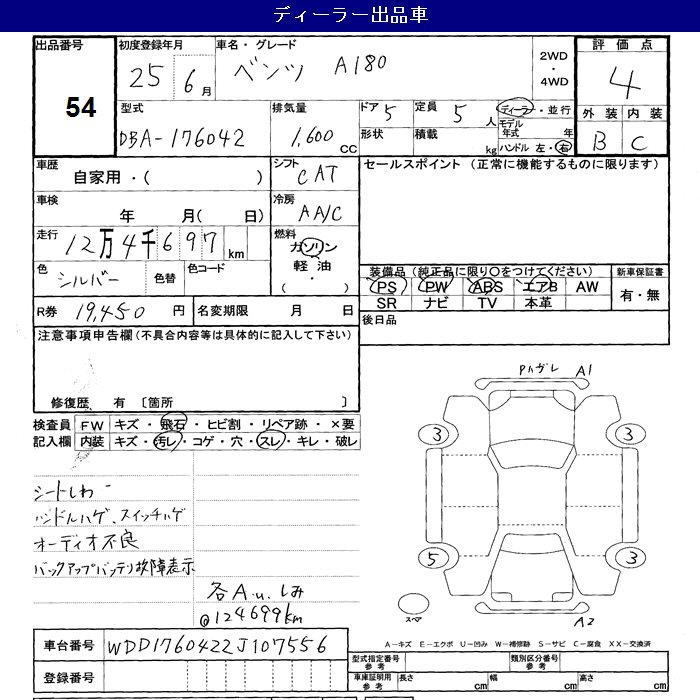 ディーラー出品車
出品番号 54
初度登録年月 25年 6月
車名・グレード ベンツ A180
2WD・4WD
評価点 4
外装 B 内装 C
型式 DBA-176042
排気量 1,600 CC
ドア 5
定員 5人
形状
積載 kg
ディーラー・並行
モデル年式 年
ハンドル 左・右
車歴 自家用・( )
シフト CAT
セールスポイント (正常に機能するものに限ります)
車検 年 月( 日)
冷房 AA/C
走行 12万4千697km
燃料 ガソリン 軽油 ( ・ )
色 シルバー 色替 色コード
装備品(純正品に限り○をつけてください)
PS PW ABS エアB AW
SR ナビ TV 本革
新車保証書 有・無
R券 19,450円
名変期限 月 日
後日品
注意事項申告欄(不具合内容等は具体的に記入して下さい)
修復歴 有〔箇所 〕
検査員記入欄
FW キズ・飛石・ヒビ割・リペア跡・×要
内装 キズ・汚レ・コゲ・穴・スレ・キレ・破レ
シートしわ
ハンドルハゲ、スイッチハゲ
オーディオ不良
バックアップバッテリ故障表示
各Au.しみ
@124699km
PハガレA1
3 3
5 3
スペア
A2
A-キズ E-エクボ U-凹み W-補修跡 S-サビ C-腐食 XX-交換済
車台番号 WDD1760422J107556
型式指定番号 参考
類別区分番号 参考
登録番号
車庫証明用 参考 長さ cm 幅 cm 高さ cm